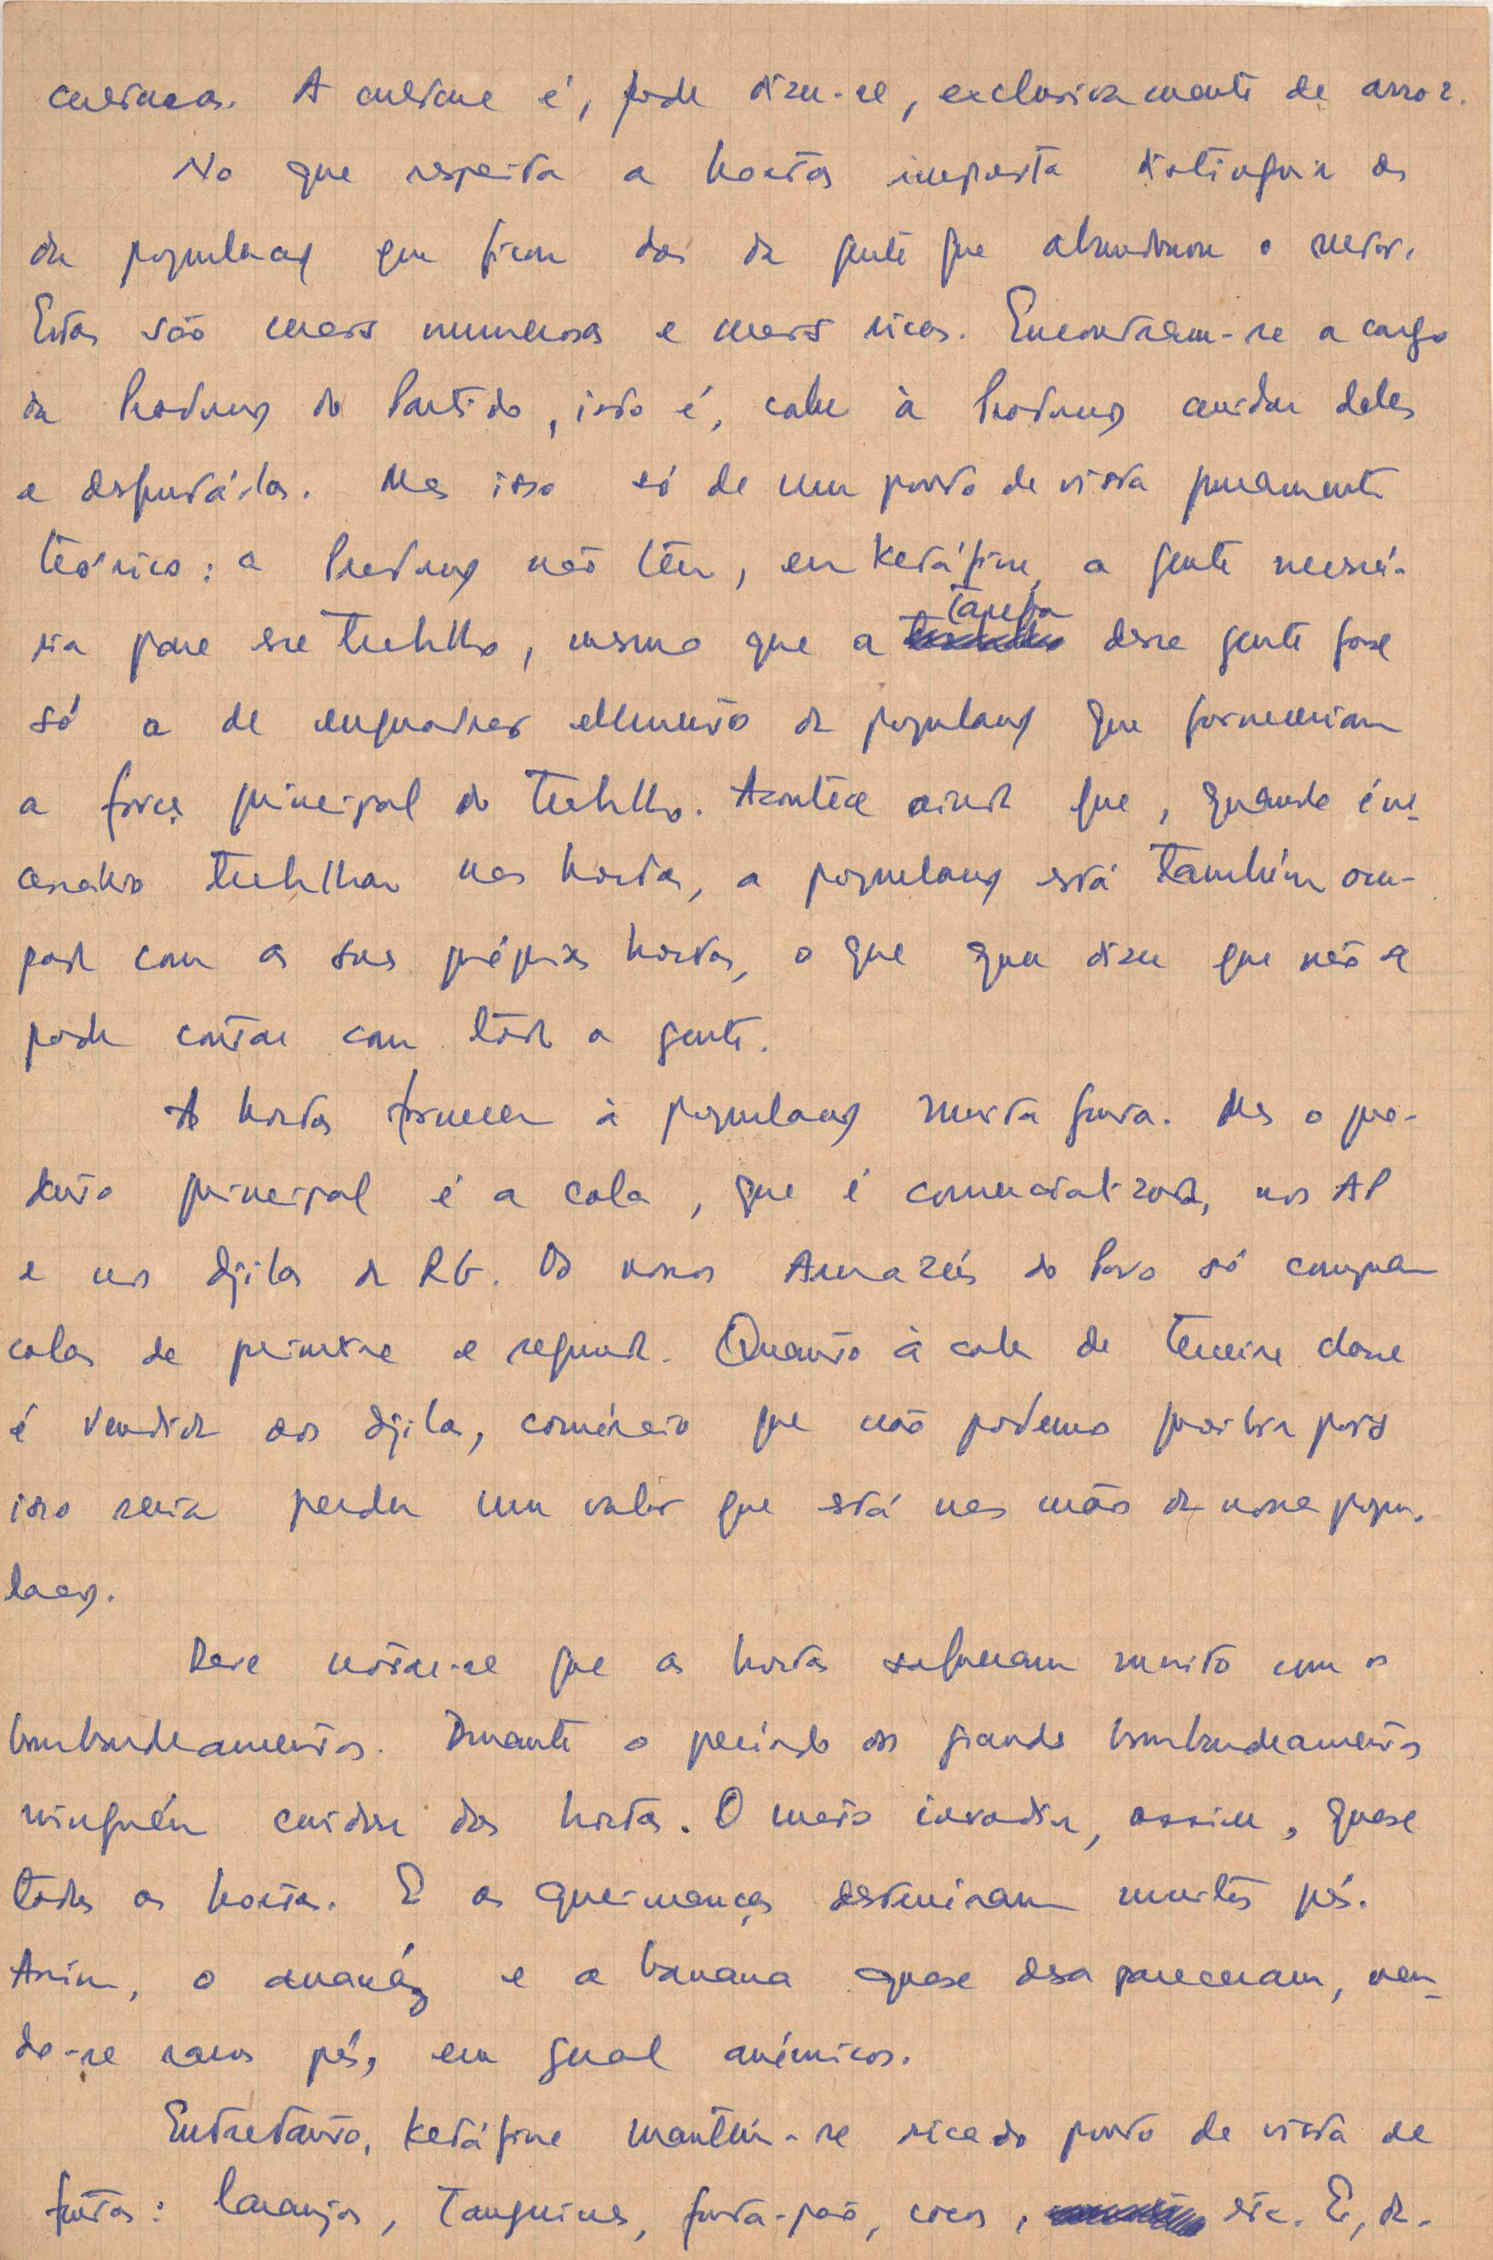 culturas. A cultura é, pode dizer-se, exclusivamente de arroz.
No que respeita a hortas importa distinguir as
da população que ficou das da gente que abandonou o sector.
Estas são mais numerosas e mais ricas. Encontram-se a cargo
da Produção do Partido, isto é, cabe à Produção cuidar delas
e desfrutá-las. Mas isso só de um ponto de vista puramente
teórico: a Produção não tem, em Ketáfine, a gente necessá-
ria para esse trabalho, mesmo que a tarefa dessa gente fosse
só a de enquadrar elementos da população que forneceriam
a força principal do trabalho. Acontece ainda que, quando é ne-
cessário trabalhar nas hortas, a população está também ocu-
pada com as suas próprias hortas, o que quer dizer que não se
pode contar com toda a gente.
As hortas fornecem à população muita fruta. Mas o pro-
duto principal é a cola, que é comercializada, nos AP
e nos djilas da RG. Os nossos Armazéns do Povo só compram
colas de primeira e segunda. Quanto à cola de terceira classe
é vendida aos djilas, comércio que não podemos proibir pois
isso seria perder um valor que está nas mãos da nossa popu-
lação.
Deve notar-se que as hortas sofreram muito com os
bombardeamentos. Durante o período dos grandes bombardeamentos
ninguém cuidou das hortas. O mato invadiu, assim, quase
todas as hortas. E as queimanças destruiram muitos pés.
Assim, o ananáz e a banana quase desapareceram, ven-
do-se raros pés, em geral anémicos.
Entretanto, Ketáfine mantém-se rica do ponto de vista de
frutas: laranjas, tangerinas, fruta-pão, cocos, etc. E, de-